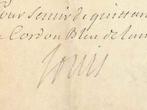 Pour servir de quittan
Cordon Bleu de l
Louis